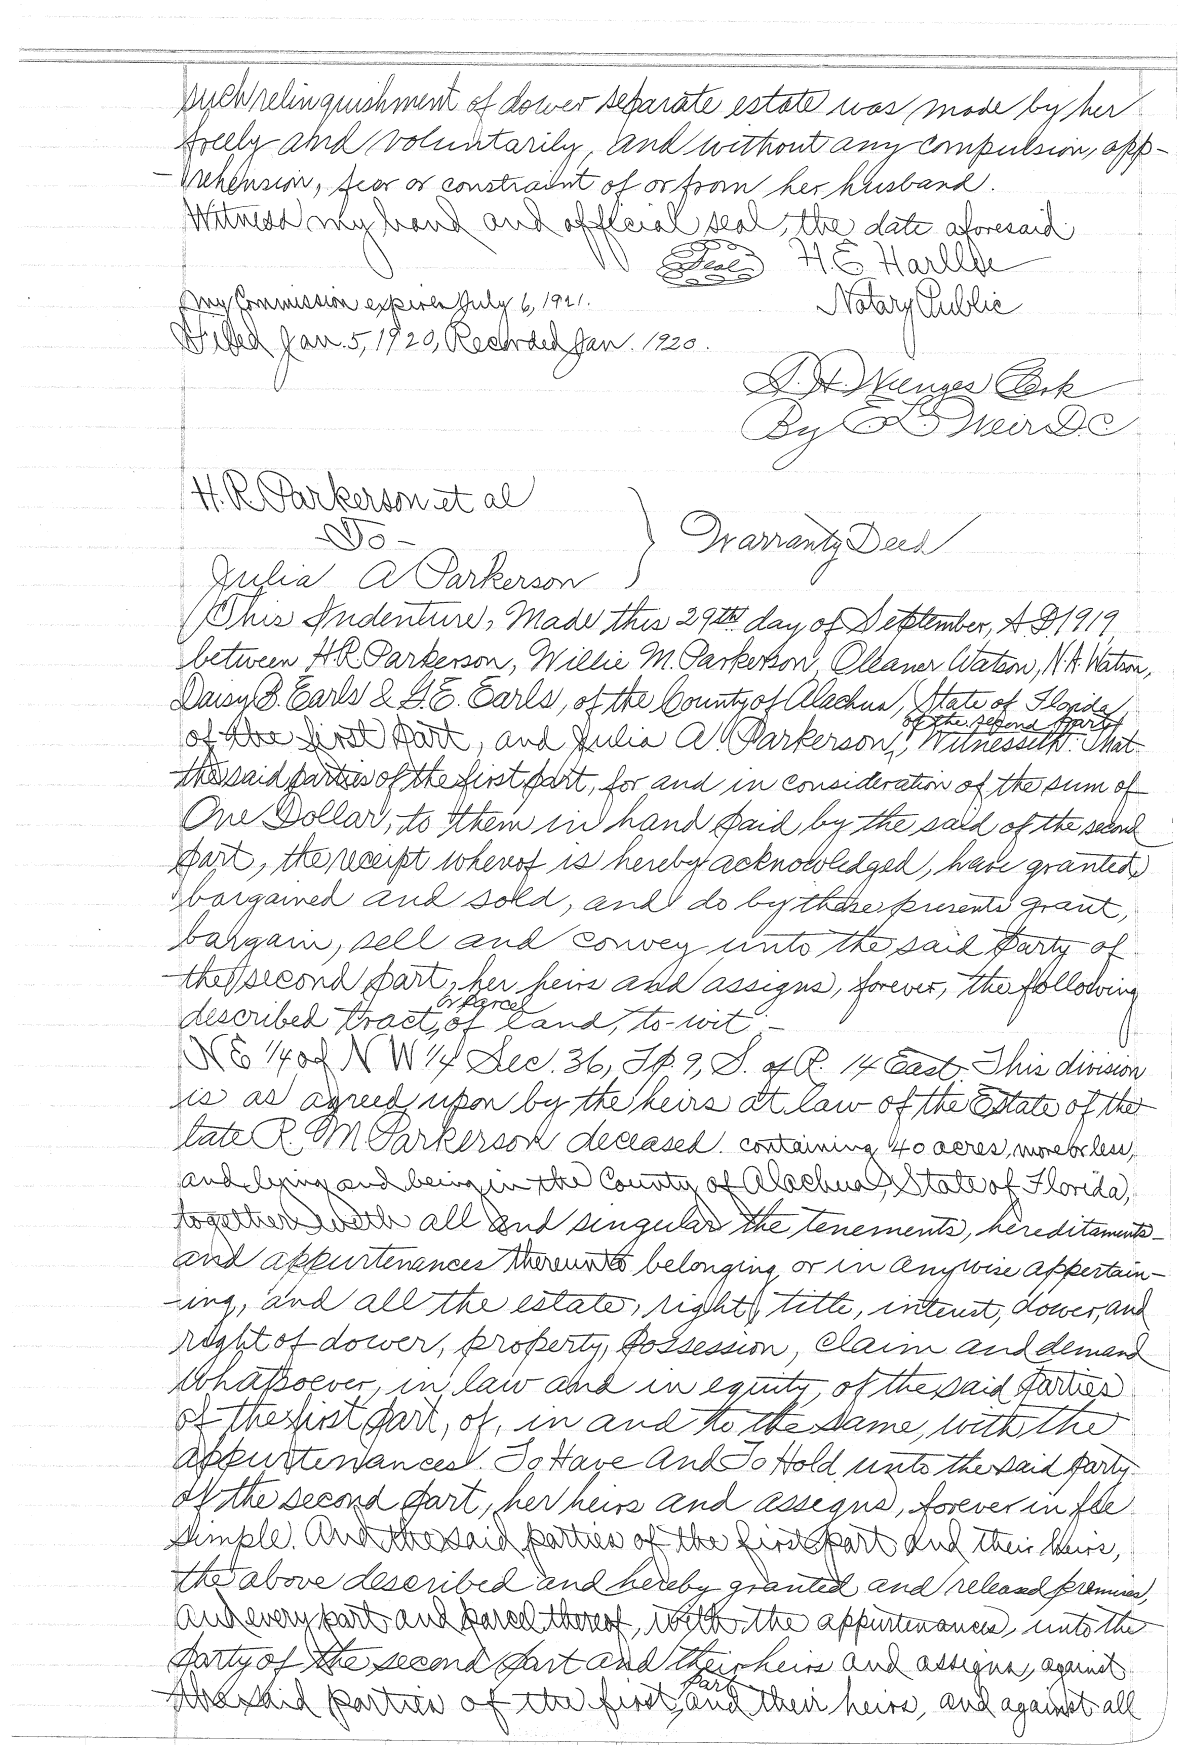 such relinquishment of dower separate estate was made by her
freely and voluntarily, and without any compulsion, app-
-rehension, fear or constraint of or from her husband.
Witness my hand and official seal, the date aforesaid
Seal H. E. Harllee
My Commission expires July 6, 1921. Notary Public
Filed Jan. 5, 1920, Recorded Jan. 1920.
S. H. Wienges Clerk
By E L Weir D.C.
H. R. Parkerson et al
-To-
Warranty Deed
Julia A Parkerson
This Indenture, Made this 29th day of September, A.D 1919,
between H.R. Parkerson, Willie M. Parkerson, Oleaner Watson, N.A. Watson,
Daisy B. Earls & G.E. Earls, of the County of Alachua, State of Florida,
of the second part
of the first part, and Julia A. Parkerson, Witnesseth: That
the said parties of the first part, for and in consideration of the sum of
One Dollar, to them in hand paid by the said of the second
part, the receipt whereof is hereby acknowledged, have granted,
bargained and sold, and do by these presents grant,
bargain, sell and convey unto the said party of
the second part, her heirs and assigns, forever, the following
or parcel
described tract, of land, to-wit:-
NE 1/4 of NW 1/4 Sec. 36, Tp. 9, S. of R. 14 East. This division
is as agreed upon by the heirs at law of the Estate of the
late R. M. Parkerson deceased. containing 40 acres, more or less,
and lying and being in the County of Alachua, State of Florida,
together with all and singular the tenements, hereditaments-
and appurtenances thereunto belonging or in anywise appertain-
-ing, and all the estate, right, title, interest, dower, and
right of dower, property, possession, claim and demand
whatsoever, in law and in equity, of the said parties
of the first part, of, in and to the same, with the
appurtenances. To Have And To Hold unto the said party
of the second part, her heirs and assigns, forever in fee
simple. And the said parties of the first part and their heirs,
the above described and hereby granted and released premises,
and every part and parcel thereof, with the appurtenances, unto the
party of the second part and their heirs and assigns, against
part
the said parties of the first, and their heirs, and against all